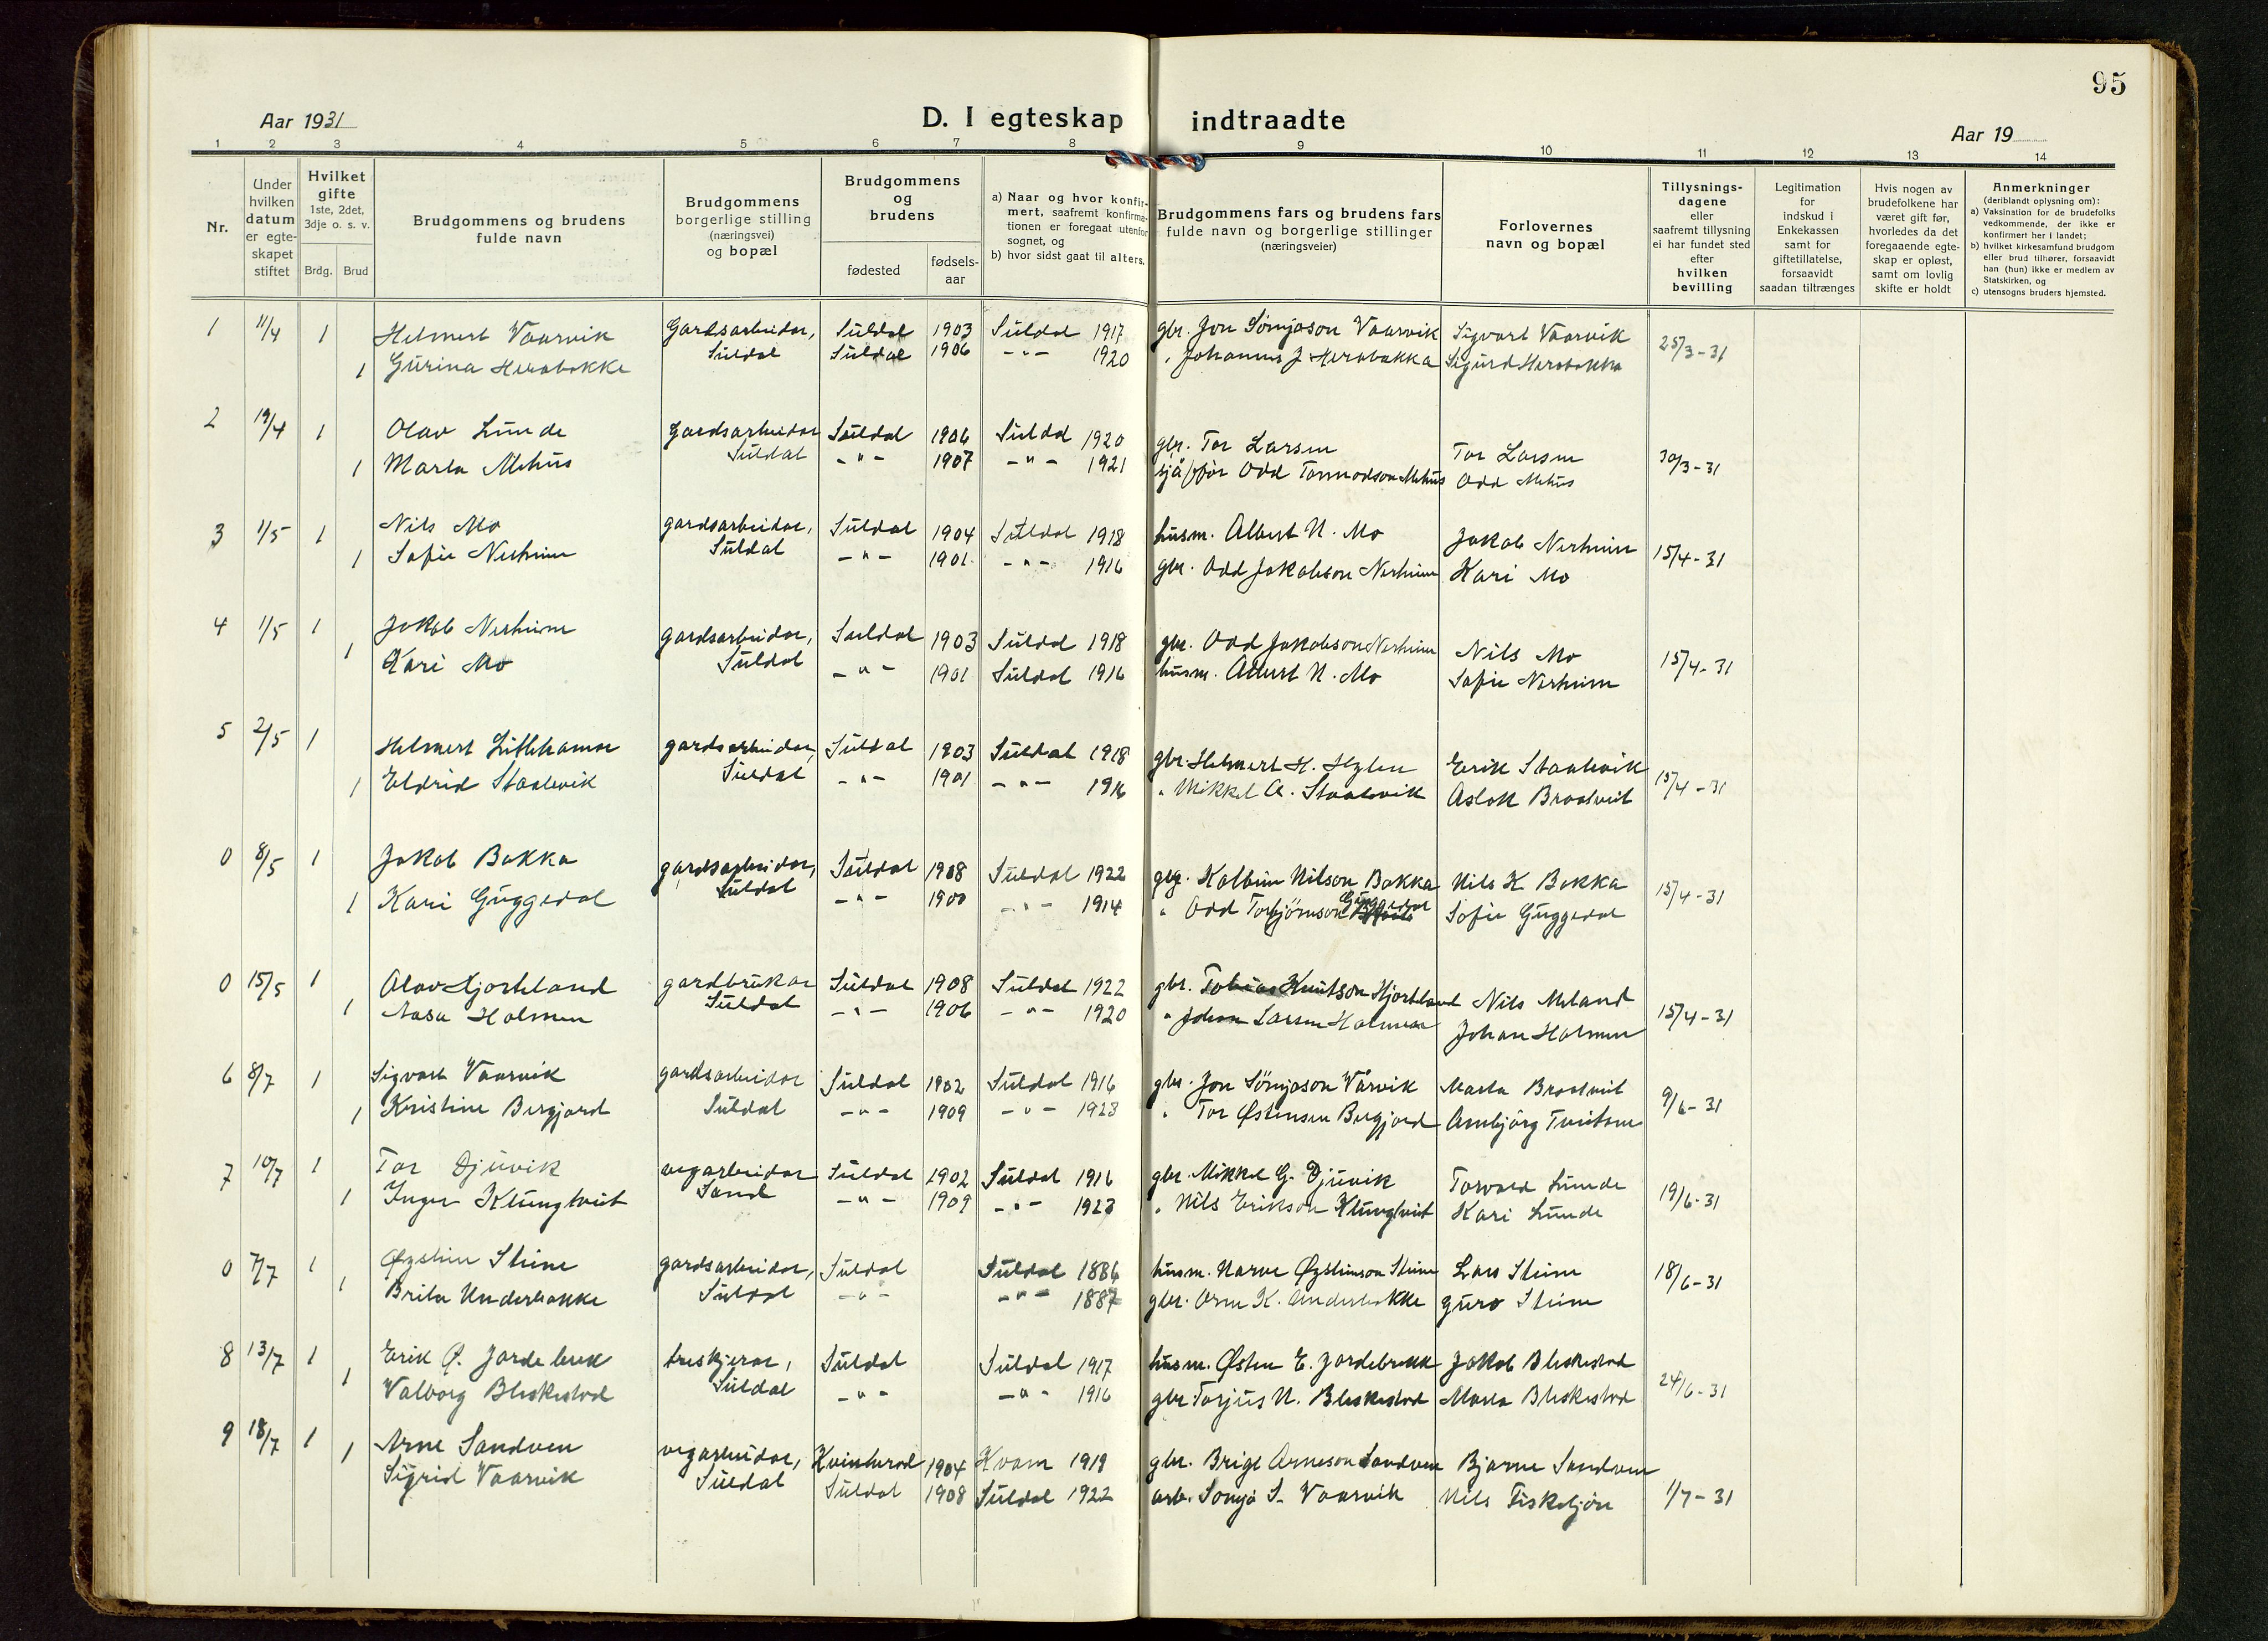 95
Aar 1931
D. I egteskap indtraadte
Aar 19
1 2 3 4 5 6 7 8 9 10 11 12 13 14
Nr.
Under hvilken datum er egte-skapet stiftet
Hvilket gifte
1ste, 2det, 3dje o. s. v.
Brdg. Brud
Brudgommens og brudens fulde navn
Brudgommens borgerlige stilling (næringsvei) og bopæl
Brudgommens og brudens
fødested
fødsels-aar
a) Naar og hvor konfir-mert, saafremt konfirma-tionen er foregaat utenfor sognet, og
b) hvor sidst gaat til alters.
Brudgommens fars og brudens fars fulde navn og borgerlige stillinger (næringsveier)
Forlovernes navn og bopæl
Tillysnings-dagene eller saafremt tillysning ei har fundet sted efter hvilken bevilling
Legitimation for indskud i Enkekassen samt for giftetillatelse, forsaavidt saadan tiltrænges
Hvis nogen av brudefolkene har været gift før, hvorledes da det foregaaende egte-skap er opløst, samt om lovlig skifte er holdt
Anmerkninger
(deriblandt oplysning om):
a) Vaksination for de brudefolks vedkommende, der ikke er konfirmert her i landet;
b) hvilket kirkesamfund brudgom eller brud tilhører, forsaavidt han (hun) ikke er medlem av Statskirken, og
c) utensogns bruders hjemsted.
1 11/4 1 Helmert Vaarvik Gardsarbeidar, Suldal 1903 Suldal 1917 gbr. Jon Sømjason Vaarvik Sigvart Vaarvik 25/3-31
1 Gurina Herabakke Suldal Suldal 1906 -"- 1920 " Johannes J Herabakka Sigurd Herabakka
2 19/4 1 Olav Lunde Gardsarbeidar Suldal 1906 Suldal 1920 gbr. Tor Larsen Tor Larsen 30/3-31
1 Marta Mehus Suldal -"- 1907 -"- 1921 sjåfør Odd Tormodson Mehus Odd Mehus
3 1/5 1 Nils Mo gardsarbeidar, Suldal 1904 Suldal 1918 husm. Albert N. Mo Jakob Nerheim 15/4-31
1 Sofie Nerheim Suldal -"- 1901 -"- 1916 gbr. Odd Jakobson Nerheim Kari Mo
4 1/5 1 Jakob Nerheim gardsarbeidar, Suldal 1903 Suldal 1918 gbr. Odd Jakobson Nerheim Nils Mo 15/4-31
1 Kari Mo Suldal -"- 1901 Suldal 1916 husm. Albert N. Mo Sofie Nerheim
5 2/5 1 Helmert Litlehamar gardsarbeidar, Suldal 1903 Suldal 1918 gbr. Helmert H. Hylen Erik Staalevik 15/4-31
1 Eldrid Staalevik Suldal -"- 1901 -"- 1916 " Mikkel A. Staalevik Aslak Braatveit
0 8/5 1 Jakob Bakka gardsarbeidar, Suldal 1908 Suldal 1922 gbr. Kolbein Nilson Bakka Nils K Bakka 15/4-31
1 Kari Guggedal Suldal -"- 1900 -"- 1914 " Odd Torbjørnson Guggedal Sofie Guggedal
0 15/5 1 Olav Hjorteland gardbrukar Suldal 1908 Suldal 1922 gbr. Tobias Knutson Hjorteland Nils Meland 15/4-31
1 Aasa Holmen Suldal -"- 1906 -"- 1920 " Johan Larsen Holmen Johan Holmen
6 8/7 1 Sigvart Vaarvik gardsarbeidar Suldal 1902 Suldal 1916 gbr. Jon Sömjason Vårvik Marta Braatveit 9/6-31
1 Kristine Bergjord Suldal -"- 1909 -"- 1923 " Tor Østensen Bergjord Ambjørg Tveitane
7 10/7 1 Tor Djuvik vegarbeidar Suldal 1902 Suldal 1916 gbr. Mikkel G. Djuvik Torvald Lunde 19/6-31
1 Inger Klungtveit Sand -"- 1909 -"- 1923 " Nils Erikson Klungtveit Kari Lunde
0 7/7 1 Øystein Steine gardsarbeidar, Suldal Suldal 1886 husm. Narve Øysteinson Steine Lars Steine 18/6-31
1 Brita Underbakke Suldal -"- -"- 1887 gbr. Arne K. Underbakke Guro Steine
8 13/7 1 Erik Ø. Jordebrek treskjerar, Suldal Suldal 1917 husm. Østen E. Jordebrekk Jakob Bleskestad 24/6-31
1 Valborg Bleskestad Suldal -"- -"- 1916 gbr Torjus N. Bleskestad Marta Bleskestad
9 18/7 1 Arne Sandven vegarbeidar, Kvinherad 1904 Kvam 1919 gbr. Brigt Arneson Sandven Bjarne Sandven
1 Sigrid Vaarvik Suldal Suldal 1908 Suldal 1922 arb. Somja S. Vaarvik Nils Fisketjøn 1/7-31